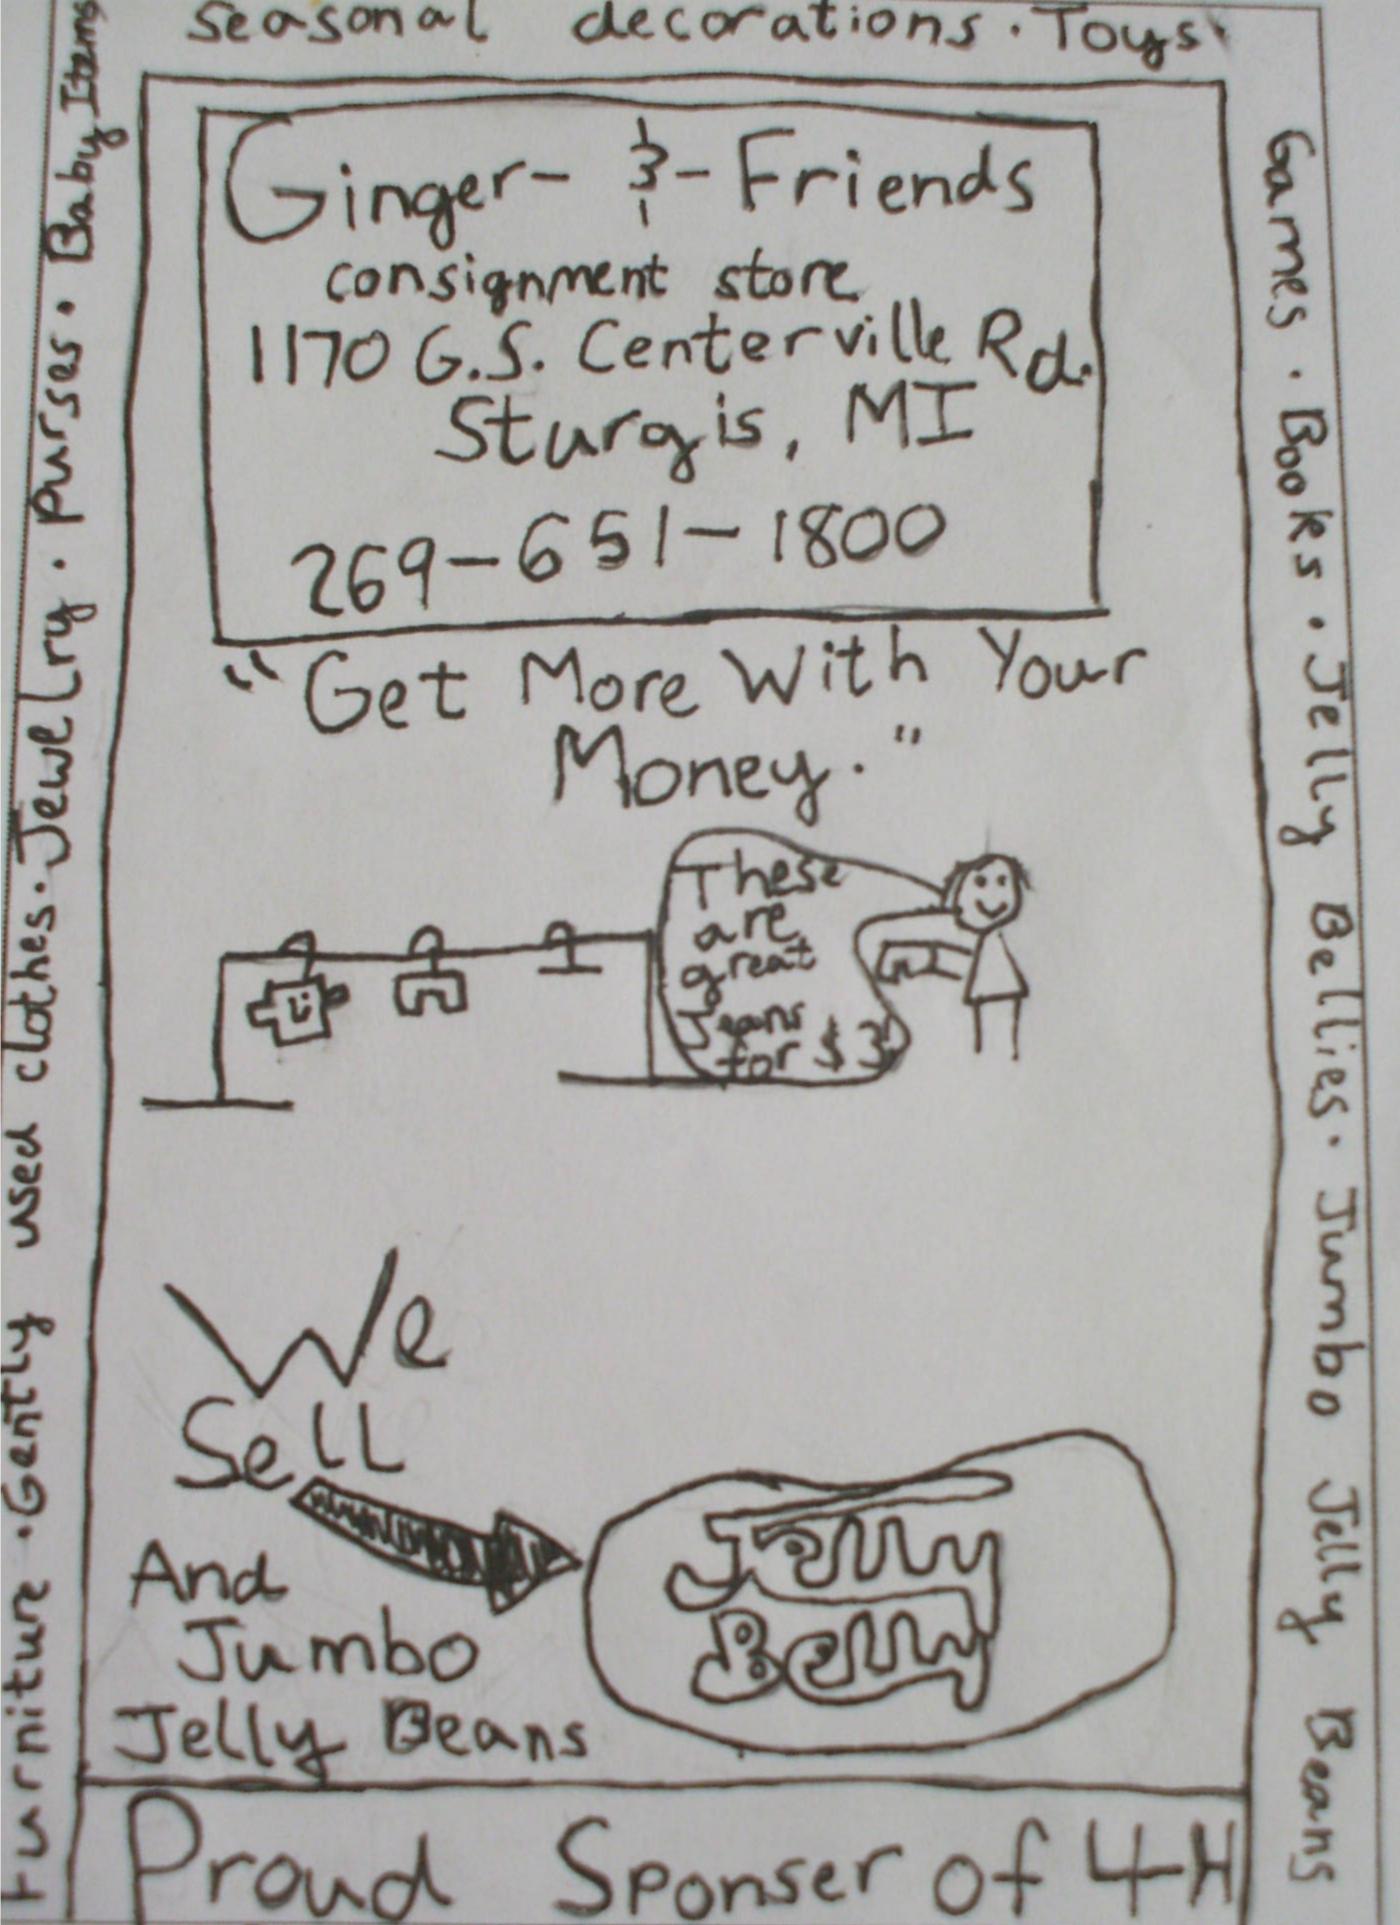 Furniture · Gently used clothes · Jewelry · Purses · Baby Items
Seasonal decorations · Toys ·
Games · Books · Jelly Bellies · Jumbo Jelly Beans
Ginger - & - Friends
consignment store
1170 G.S. Centerville Rd.
Sturgis, MI
269-651-1800
"Get More With Your
Money."
These
are
great
Jeans
for $3
We
Sell
Jelly
Belly
And
Jumbo
Jelly Beans
Proud Sponser of 4-H